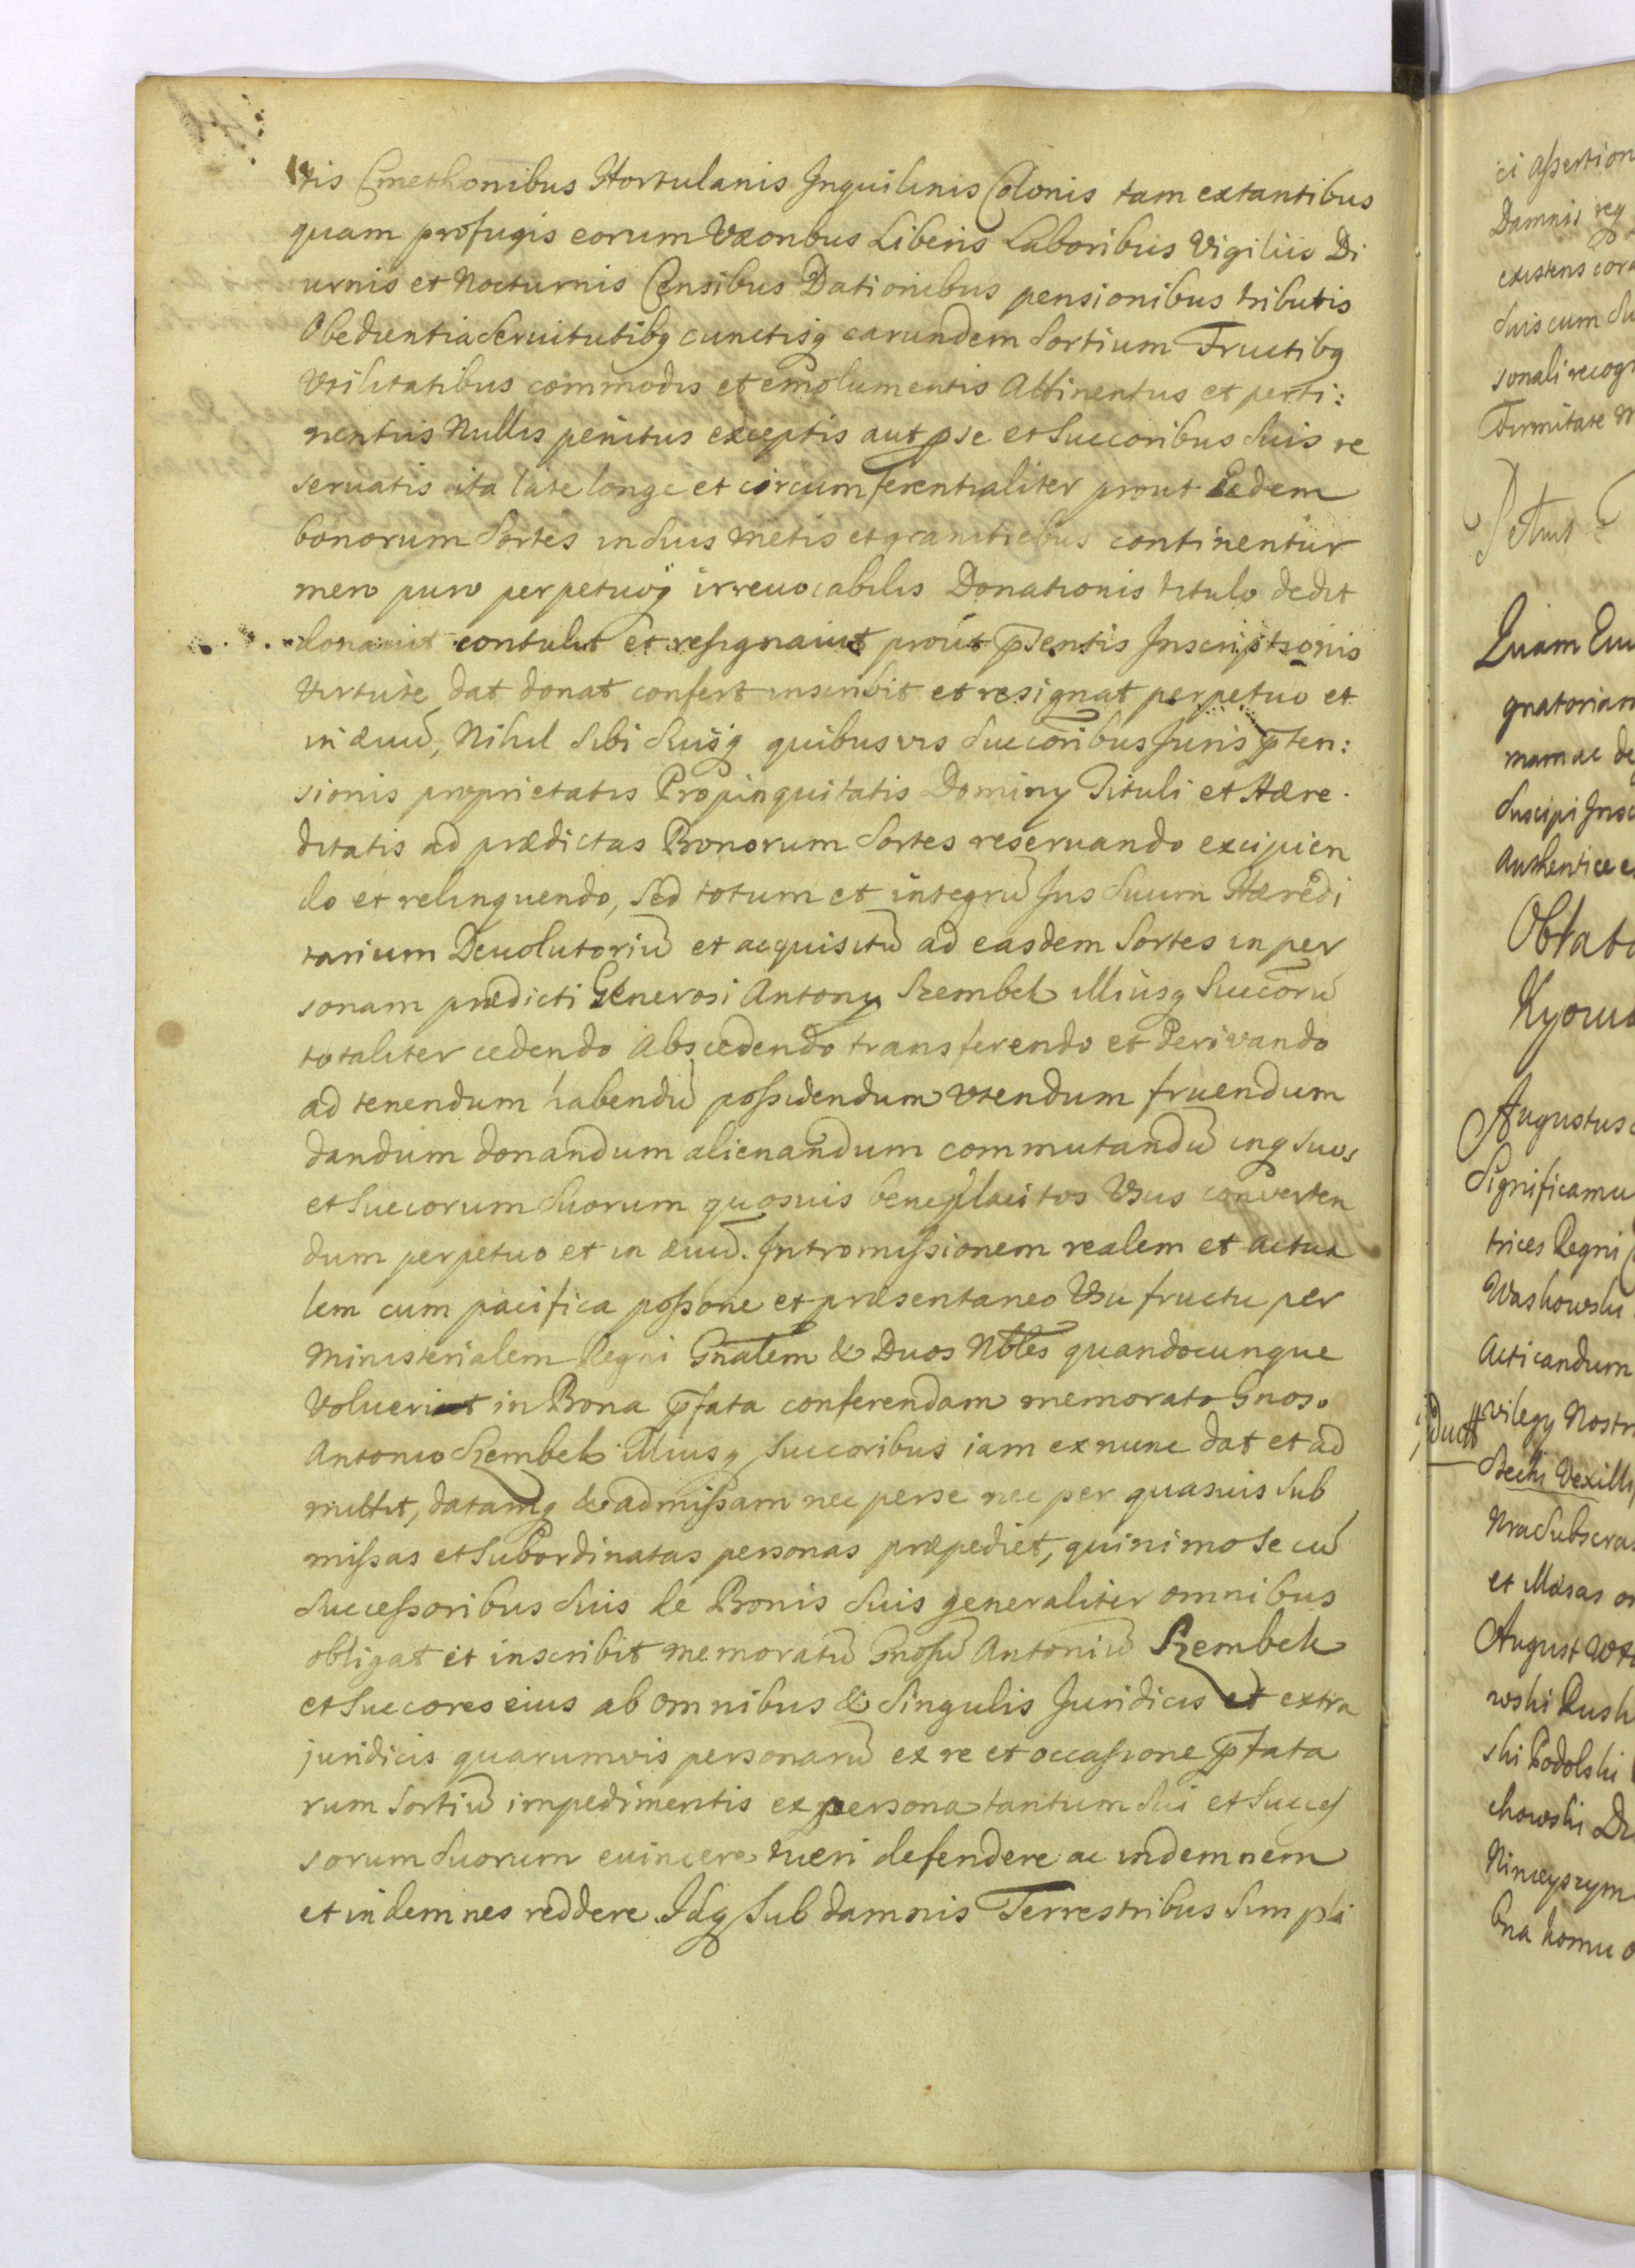 tis Cmethonibus Hortulanis Inquilinis Colonis tam extantibus
quam profugis eorum Vxoribus Liberis Laboribus Vigiliis Di
urnis et Nocturnis Censibus Dationibus pensionibus tributis
Obedientia Seruitutibq cunctisq earundem Sortium Fructibq
Vtilitatibus commodis et emolumentis Attinentiis et perti:
nentiis Nullis penitus exceptis aut p se et Succoribus Suis re
seruatis ita late longe et circumferentialiter prout Eædem
bonorum Sortes in Suis metis et granitiebus continentur
mero puro perpetuoq irreuocabilis Donationis titulo dedit
donauit contulit et resignauit prout pñsentis Inscriptionis
Virtute dat donat confert inscribit et resignat perpetuo et
in æuū, Nihil Sibi Suisq quibusvis Succoribus Juris prten:
sionis proprietatis Propinquitatis Dominy Tituli et Hære
ditatis ad prædictas Bonorum Sortes reseruando excipien
do et relinquendo, Sed totum et integrū Jus Suum Hæredi
tarium Deuolutoriū et acquisitū ad easdem Sortes in per
sonam prædicti Generosi Antony Szembek Illiusq Succorū
totaliter cedendo Abscedendo transferendo et Derivando
ad tenendum habendū possidendum vtendum fruendum
dandum donandum alienandum commutandū inq Suos
et Succorum Suorum quosuis beneplacitos Vsus converten
dum perpetuo et in æuū. Intromissionem realem et actua
lem cum pacifica possone et præsentaneo Vsu fructu per
Ministerialem Regni Gnalem & Duos Nbles quandocunque
Voluerint in Bona prfata conferendam memorato Gnoso
Antonio Szembek Illiusq Succoribus iam ex nunc dat et ad
mittit, datamq & admissam nec per se nec per quasuis Sub
missas et Subordinatas personas præpediet, quinimo Se cū
Successoribus Suis de Bonis Suis generaliter omnibus
obligat et inscribit memoratū Gnosū Antoniū Szembek
et Succores eius ab omnibus & Singulis Juridicis et extra
juridicis quarumvis personarū ex re et occasione prfata
rum Sortiū impedimentis ex persona tantum Sui et Succes
sorum Suorum euincere tueri defendere ac indemnem
et indemnes reddere. Idq Sub damnis Terrestribus Simpli
ci assertion
Damnis reg
existens cora
Suis cum Su
sonali recog
Firmitate
Petrus
Quam
gnatoriam
mam ac de
Suscipi Insc
Authentice e
Oblata
Kyow
Augustus
Significamu
trices Regni
Washowski
Acticandum
vilegy Nostr
Vexilli
Nra Subscra
et Massas
August
wski Rusk
ski Podolski
chowski